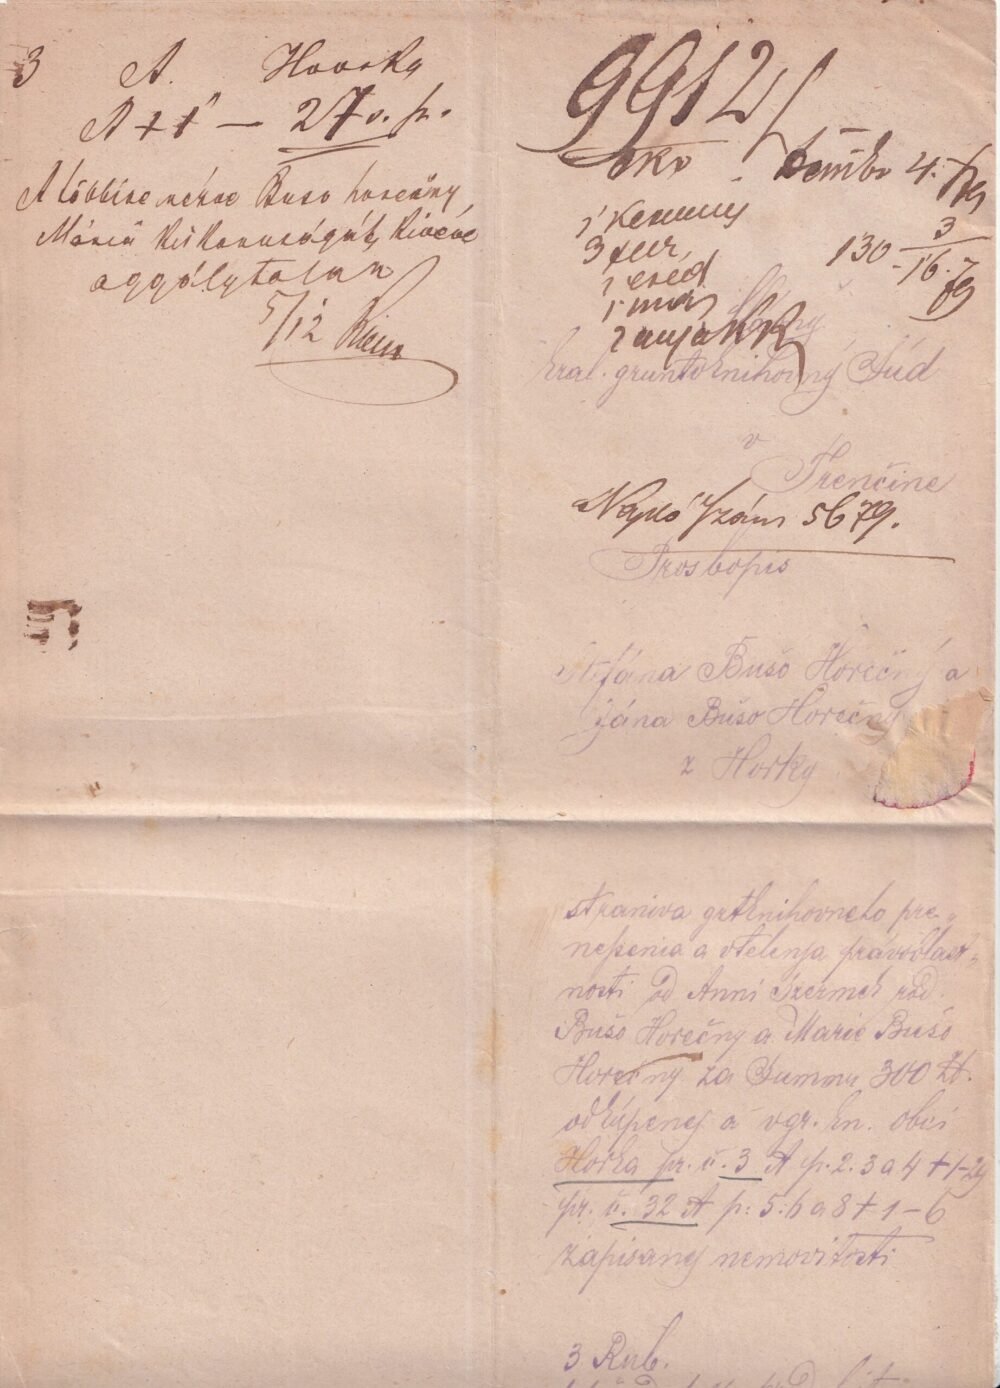 3 A. Hovrka
A ++ 1 — 27 o. p.
A többire nézve Buso horečny
Mária kiskorúságát kivéve
aggálytalan
5/12
9912
4.
1 kérvény
3
1 ered
1 más
130 3
16.
Slávny
kral. gruntoknihovný Súd
v
Trenčíne
Napló szám 5679.
Prosbopis
Štefána Bušo Horečný a
Jána Bušo Horečný
z Horky
straniva grtknihovneho pre-
neßenia a vtelenja právovlast-
nosti od Anni rod.
Bušo Horečny a Marie Bušo
Horečny za Summu 300 Zt.
odkúpenej a v gr. kn. obci
Horka pr. č. 3 A p. 2. 3 a 4 + 1-29
pr. č. 32 A p: 5: 6 a 8 + 1 - 6
zapisanej nemovitosti
3 Rub.